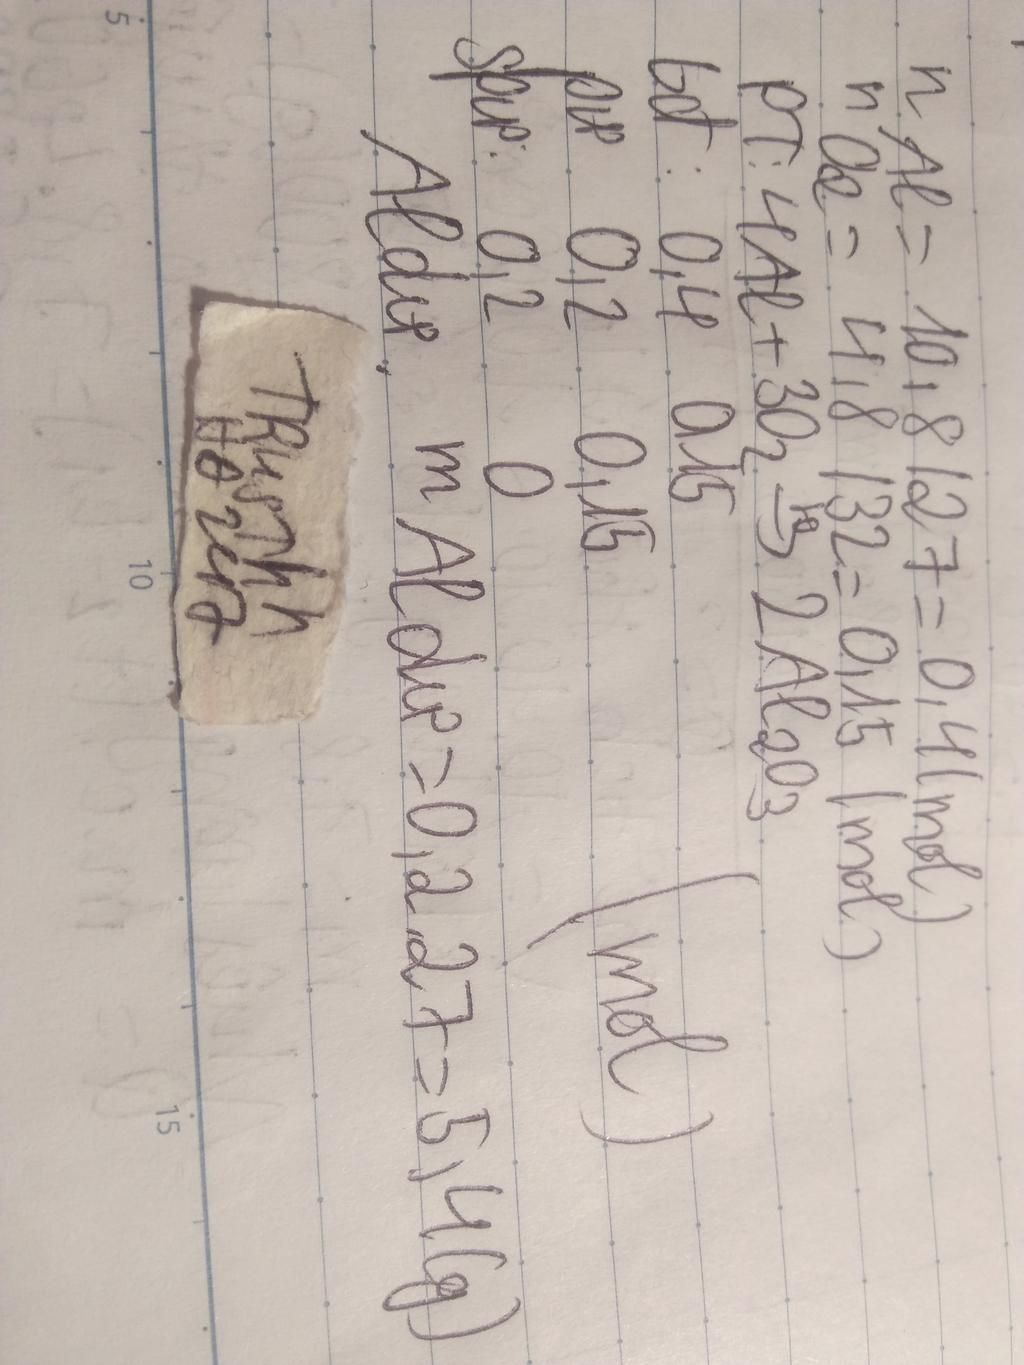 n Al = 10,8 / 27 = 0,4 (mol)
n O2 = 4,8 / 32 = 0,15 (mol)
PT: 4Al + 3O2 → 2 Al2O3
bđ: 0,4 0,15
pư 0,2 0,15 (mol)
spư: 0,2 0
Al dư, m Al dư = 0,2.27 = 5,4 (g)
5 10 15